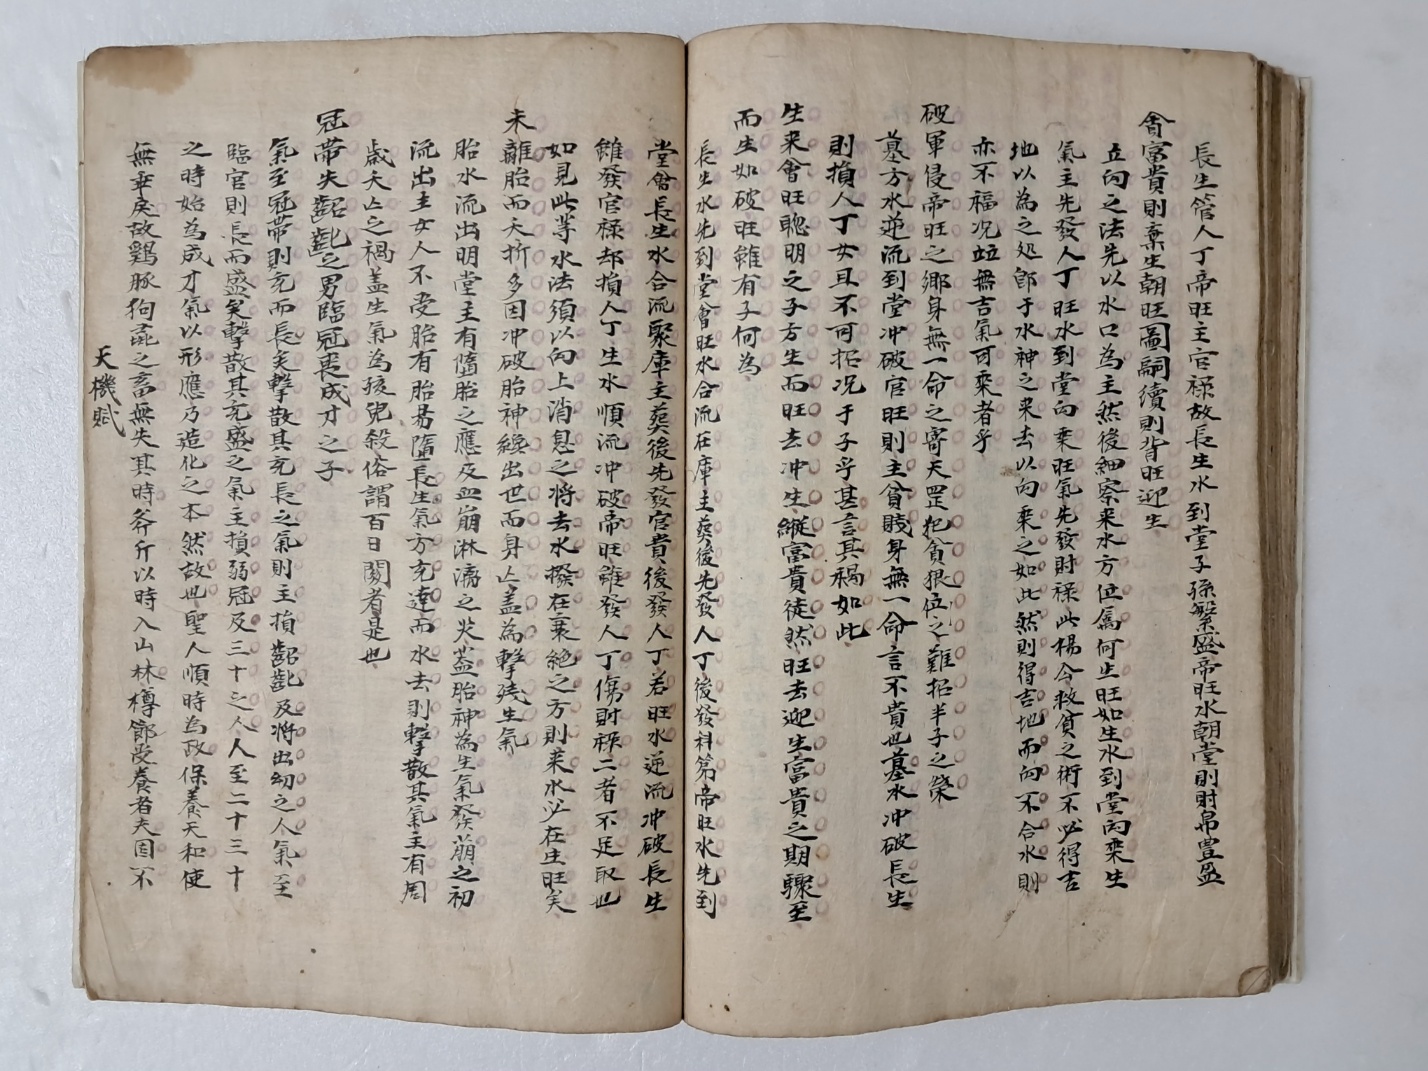 長生管人丁帝旺主官祿故長生水到堂子孫繁盛帝旺水朝堂則財帛豊盈
會富貴則棄生朝旺圖嗣續則背旺迎生
立向之法先以水口為主然後細察来水方位属何生旺如生水到堂向乗生
氣主先發人丁旺水到堂向乗旺氣先發財祿此楊今救貧之術不必得吉
地以為之処即于水神之来去以向乗之如此然則得吉地而向不合水則
亦不福况並無吉氣可乗者乎
破軍侵帝旺之鄉身無一命之寄天罡犯貧狼位之難招半子之榮
墓方水逆流到堂冲破官旺則主貧賎身無一命言不貴也墓水冲破長生
則損人丁女且不可招况于子乎甚言其禍如此
生来會旺聰明之子方生而旺去冲生縱富貴徒然旺去迎生富貴之期驟至
而生如破旺雖有子何為
長生水先到堂會旺水合流在庫主葬後先發人丁後發科第帝旺水先到
堂會長生水合流聚庫主葬後先發官貴後發人丁若旺水逆流冲破長生
雖發官祿却損人丁生水順流冲破帝旺雖發人丁傷財祿二者不足取也
如見此等水法須以向上消息之将去水撥在衰絶之方則来水必在生旺矣
未離胎而夭折多因冲破胎神纔出世而身亾盖為擊残生氣
胎水流出明堂主有墮胎之應及血崩淋漓之災盖胎神為生氣發萠之初
流出主女人不受胎有胎易墮長生氣方充達而水去則擊散其氣主有周
歲夭亾之禍盖生氣為孩児殺俗謂百日関者是也
冠帶失齠齔之男臨冠喪成才之子
氣至冠帶則充而長矣擊散其充長之氣則主損齠齔及将出幼之人氣至
臨官則長而盛矣擊散其充盛之氣主損弱冠及三十之人人至二十三十
之時始為成才氣以形應乃造化之本然故也聖人順時為政保養天和使
無乖戾故鷄豚狗彘之畜無失其時斧斤以時入山林樽節受養者夫因不
天機賦